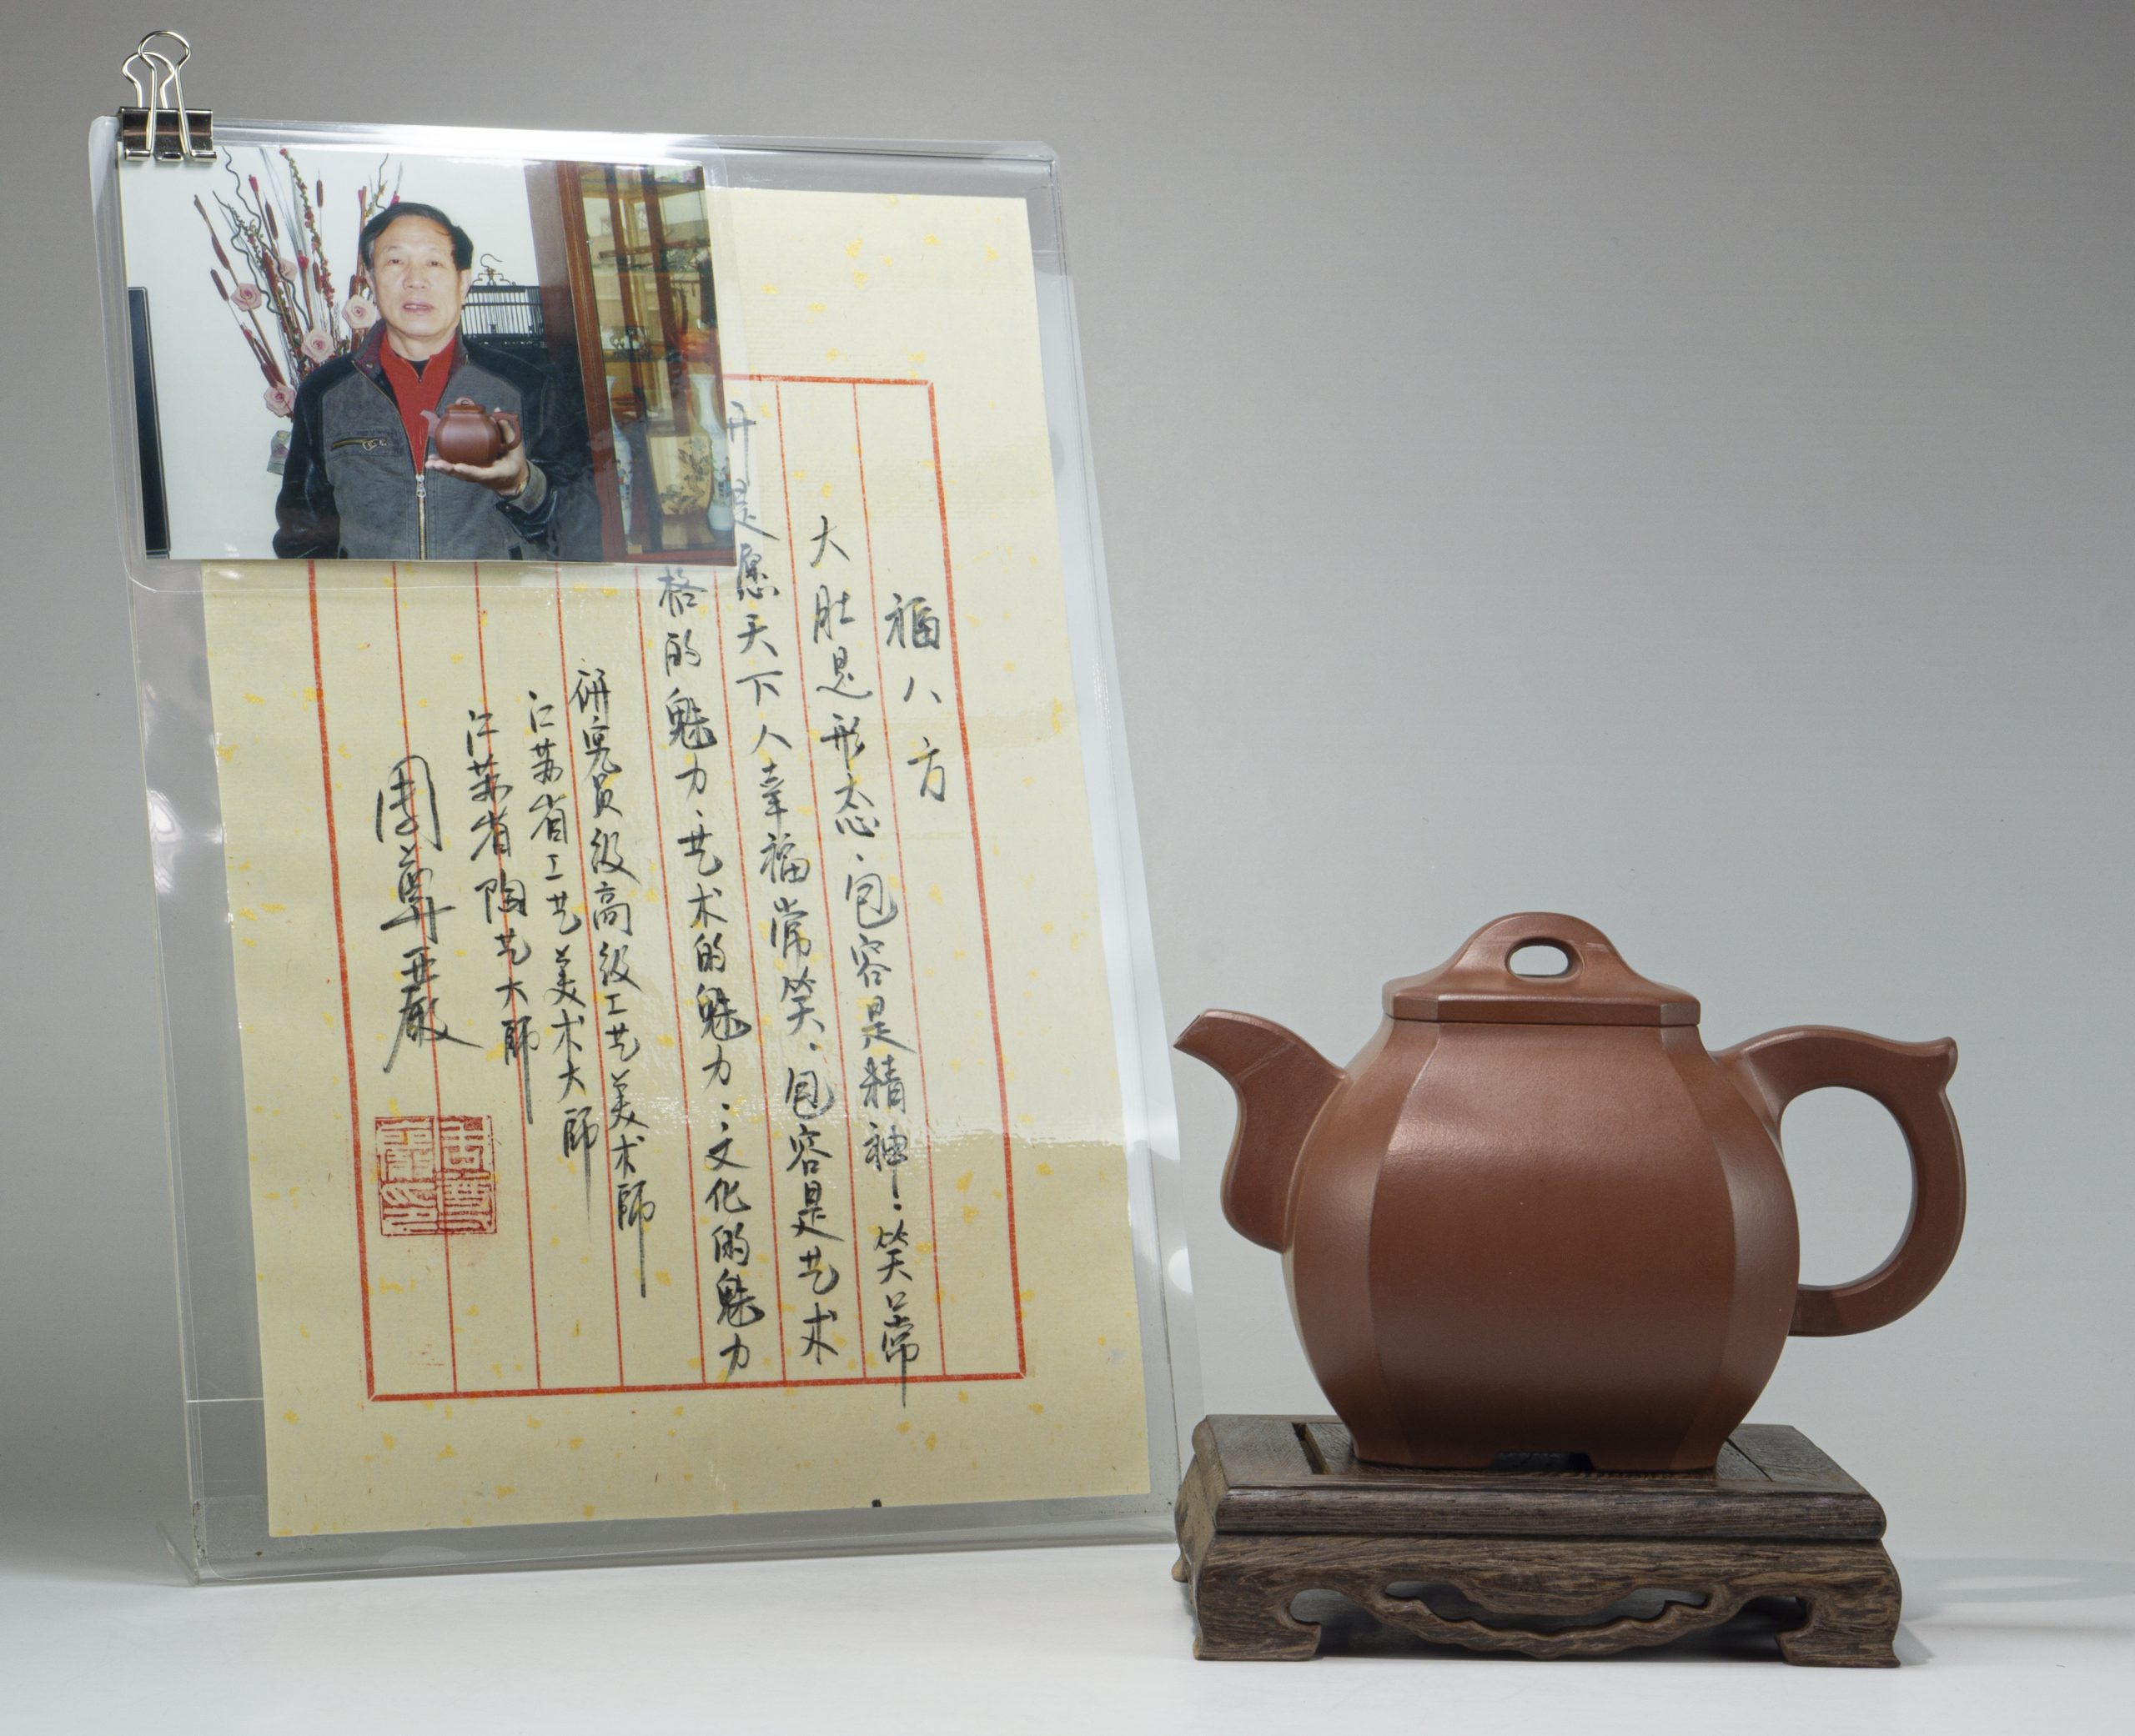 福八方
大肚是形态、包容是精神：笑常
开是愿天下人幸福常笑、包容是艺术
格的魅力、艺术的魅力：文化的魅力
研究员级高级工艺美术師
江苏省工艺美术大師
江苏省陶艺大師
周尊严